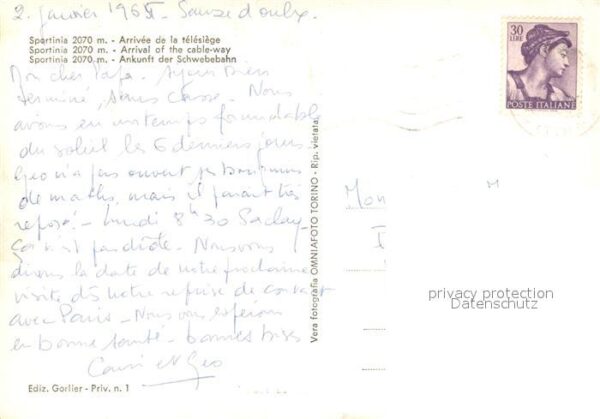 2. janvier 1965 - Sauze d'oulx.
Sportinia 2070 m. - Arrivée de la télésiège
Sportinia 2070 m. - Arrival of the cable-way
Sportinia 2070 m. - Ankunft der Schwebebahn
Mon cher Papa. Ayons bien
terminé, sans casse. Nous
avons eu un temps formidable
du soleil les 6 derniers jours.
Geo n'a pas ouvert ses bouquins
de maths, mais il parait très
reposé. - Lundi 8h30 Saclay
ça n'est pas drôle. Nous vous
dirons la date de notre prochaine
visite dès notre reprise de contact
avec Paris - Nous vous espérons
en bonne santé - bonnes bises
et Geo
Ediz. Gorlier - Priv. n. 1
Vera fotografia OMNIAFOTO TORINO - Rip. vietata
30
LIRE
POSTE ITALIANE
M
privacy protection
Datenschutz